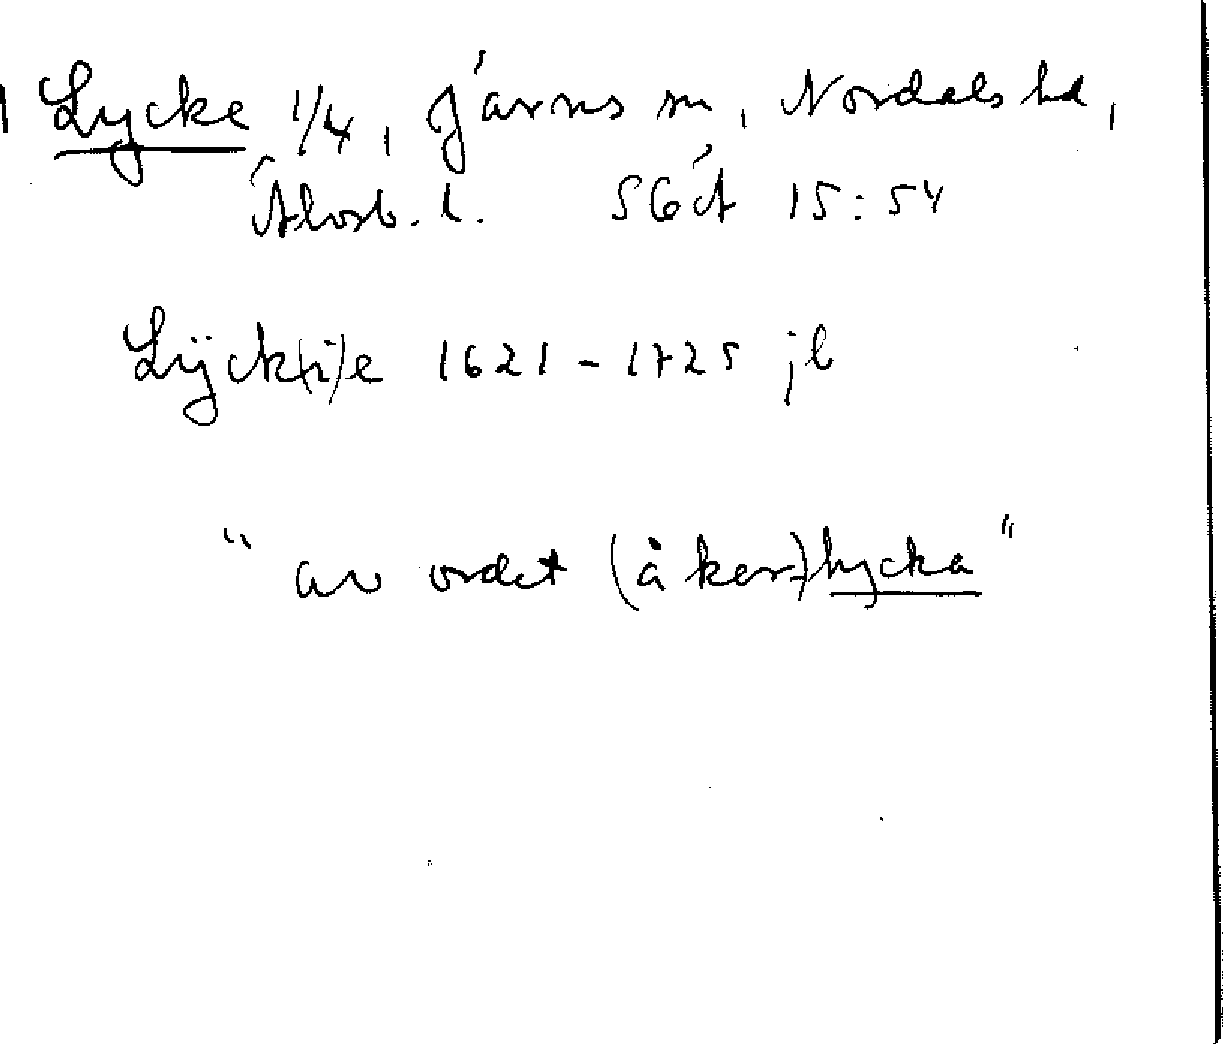 Lycke 1/4, Järns sn, Nordals hd,
Älvsb. l. SGÄ 15:54
Lÿck(i)e 1621-1725 jb
"av ordet (åker-)lycka"